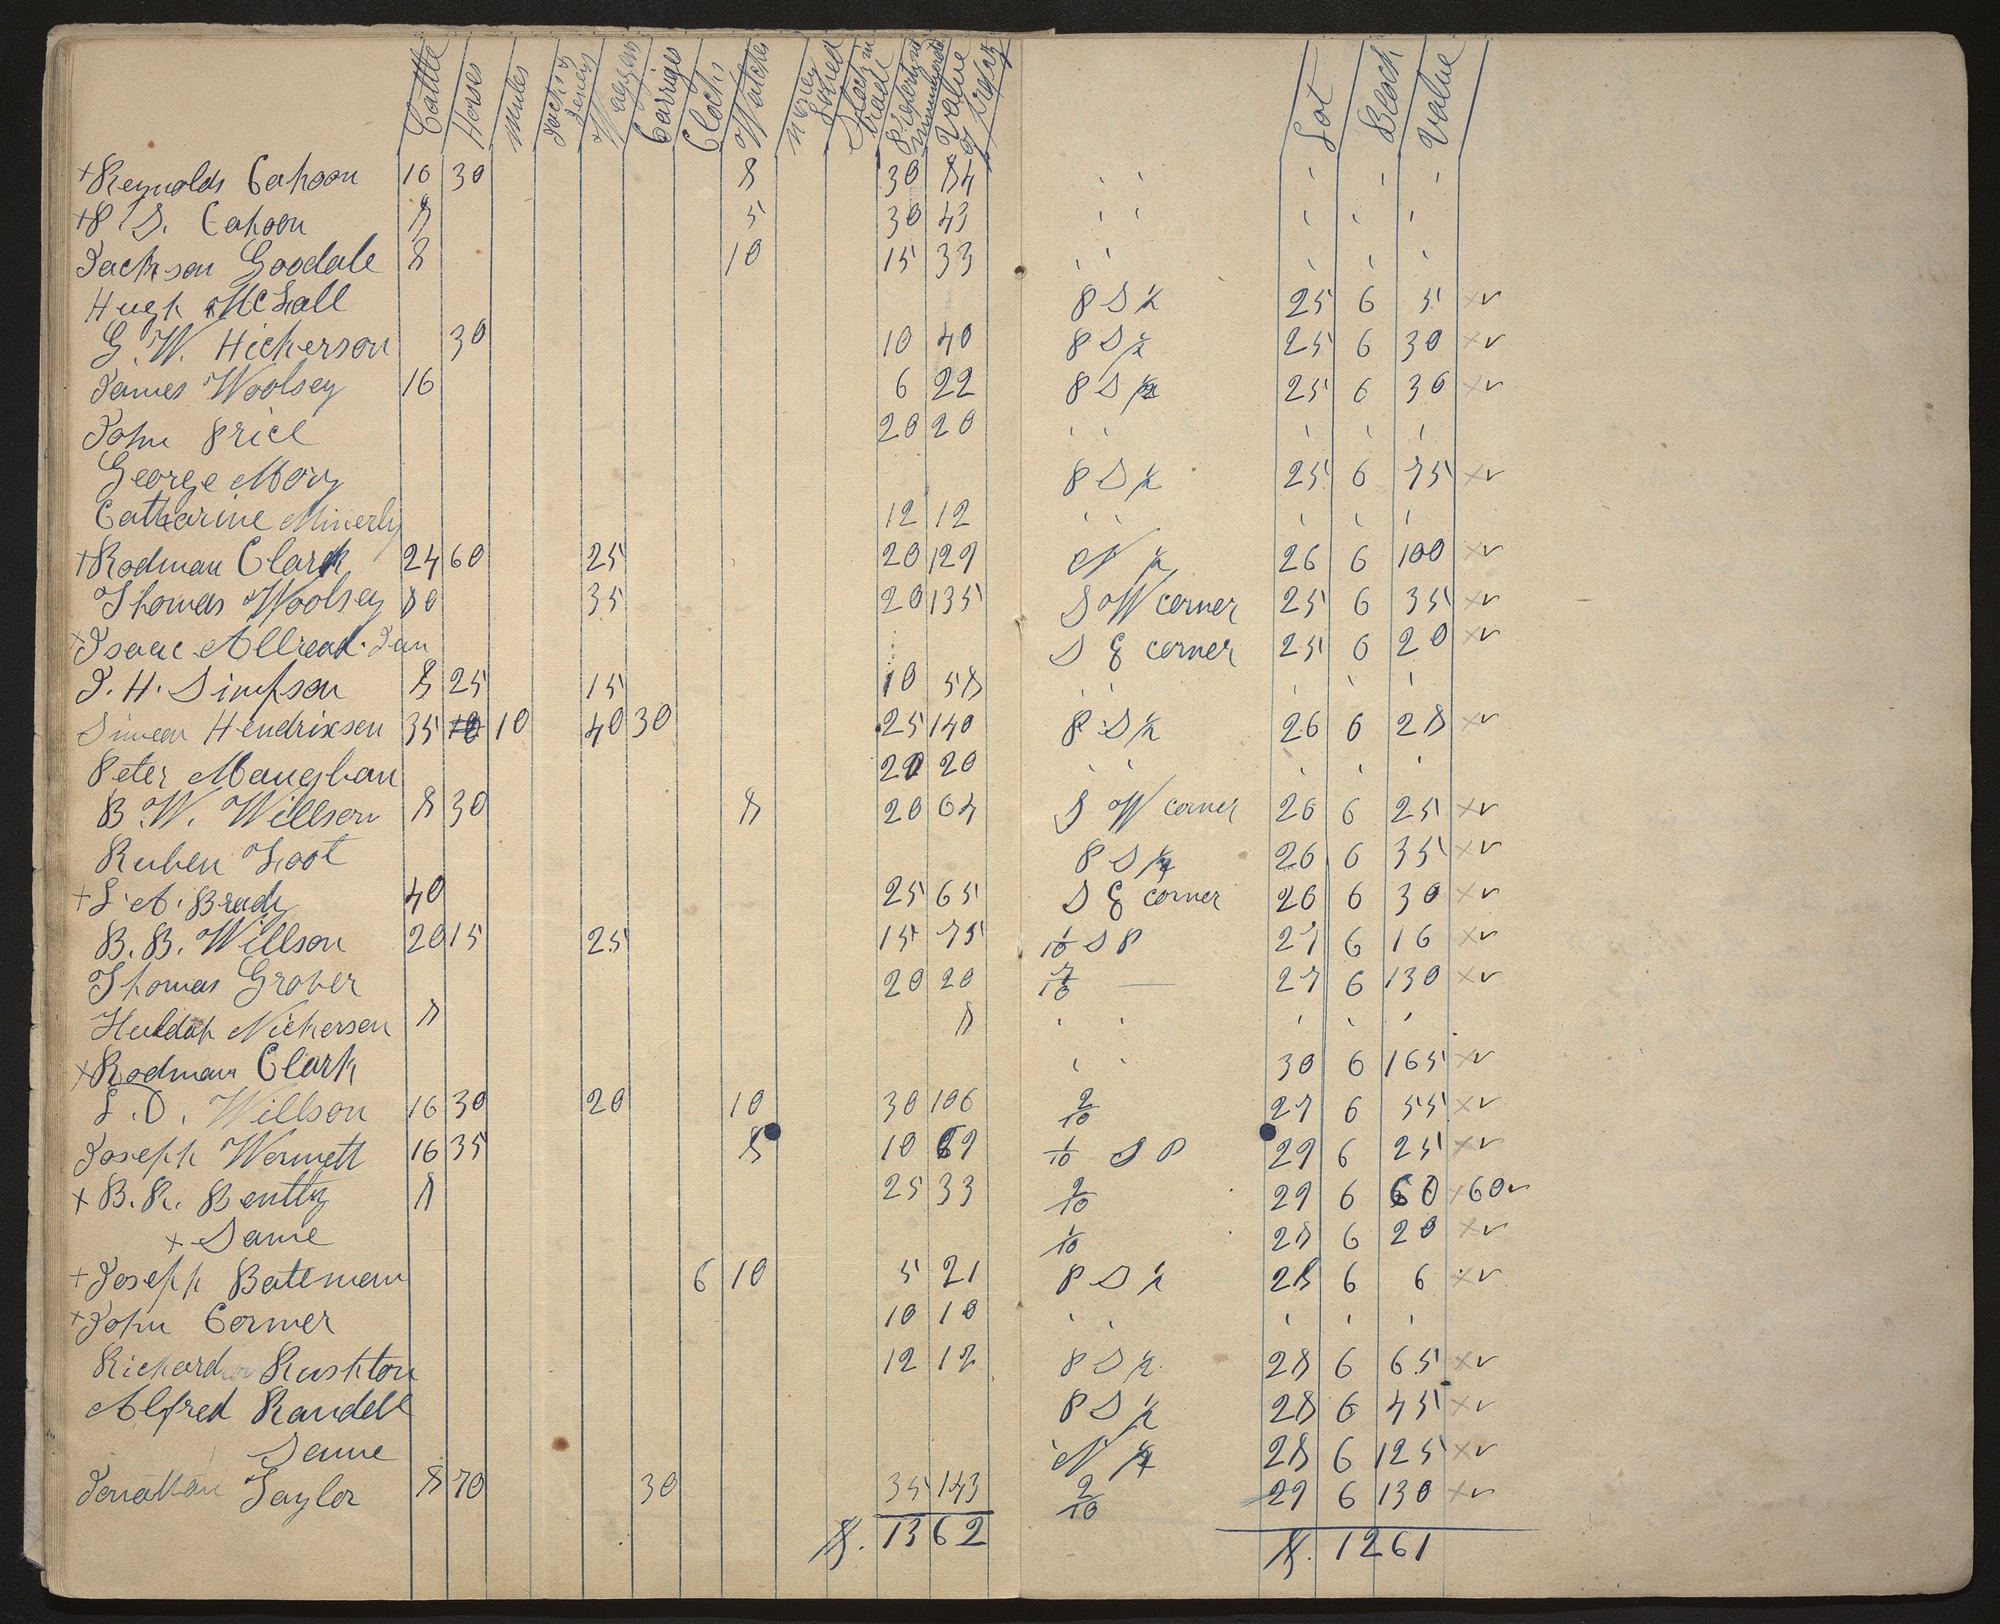 Cattle Horses Mules Jacks & Jeneys Waggons Carriges Clocks Watches Money Loned Stock in trade Value of property Lot Block Value
+ Reynolds Cahoon 16 30 8 30 84 " " " " "
+ P. S. Cahoon 8 5 30 43 " " " " "
Jackson Goodale 8 10 15 33 " " " " "
Hugh McFall P S ½ 25 6 5 x v
G. W. Hickerson 30 10 40 P S ½ 25 6 30 x v
James Woolsey 16 6 22 P S ½ 25 6 30 x v
John Price 20 20 " " " " "
George Mory P S ½ 25 6 75 x v
Catharine Minerly 12 12 " " " " "
+ Rodman Clark 24 60 25 20 129 N ½ 26 6 100 x v
Thomas Woolsey 80 35 20 135 S W corner 25 6 35 x v
+ Isaac Allread Jun S E corner 25 6 20 x v
J. H. Simpson 8 25 15 10 58 " " " " "
Simeon Hendrixson 35 10 40 30 25 140 P S ½ 26 6 28 x v
Peter Maughan 20 20 " " " " "
B. W. Willson 8 30 8 20 64 S W corner 26 6 25 x v
Ruben Foot P S ¼ 26 6 35 x v
+ L. A. Brady 40 25 65 S E corner 26 6 30 x v
B. B. Willson 20 15 25 15 75 1/10 S P 27 6 16 x v
Thomas Grover 20 20 7/10 — 27 6 130 x v
Huldah Nickerson 8 8 " " " " "
x Rodman Clark " " 30 6 165 x v
L. D. Willson 16 30 20 10 30 106 2/10 27 6 55 x v
Joseph Wormett 16 35 8 10 69 1/10 S P 29 6 25 x v
+ B. R. Bently 8 25 33 2/10 29 6 60 x 60 v
+ Same 1/10 28 6 20 x v
+ Joseph Bateman 6 10 5 21 P S ½ 28 6 6 x v
+ John Cormer 10 10 " " " " "
Richard Rushton 12 12 P S ½ 28 6 65 x v
Alfred Randell P S ½ 28 6 45 x v
Same N ¼ 28 6 125 x v
Jonathan Taylor 8 70 30 35 143 2/10 29 6 130 x v
$. 1362 $. 1261